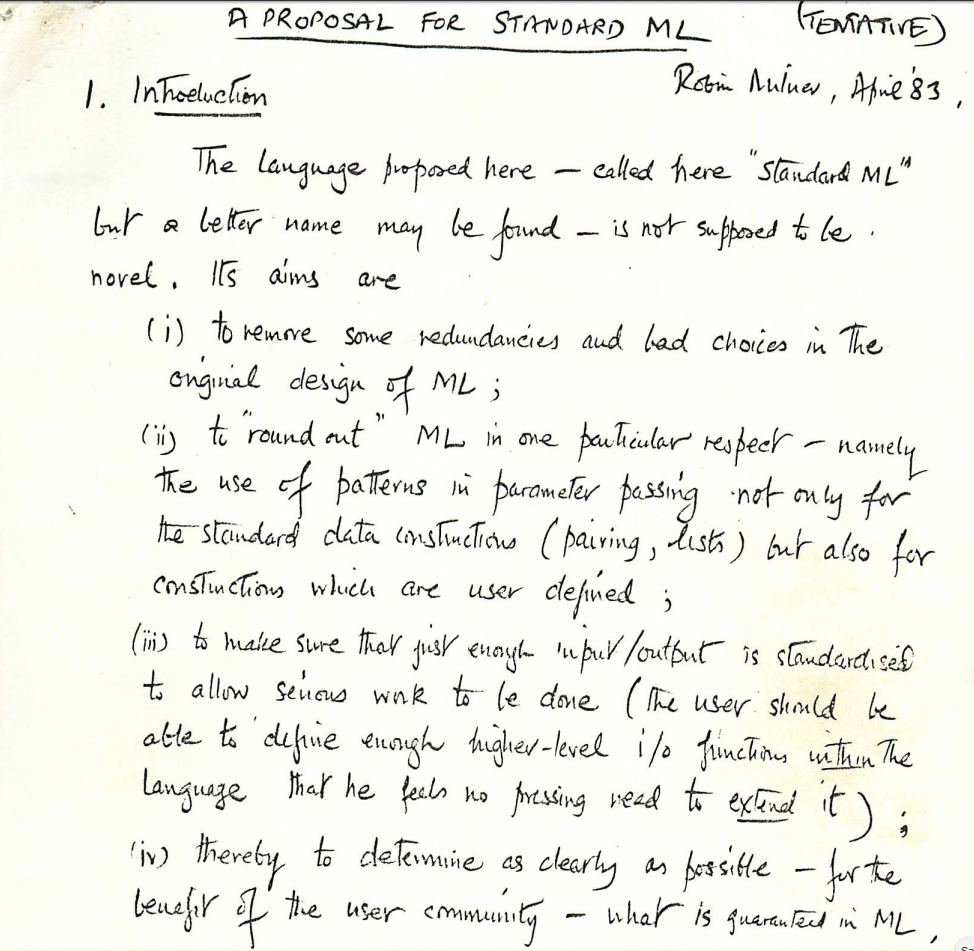 A PROPOSAL FOR STANDARD ML (TENTATIVE)
Robin Milner, April '83,
1. Introduction
The language proposed here — called here "Standard ML"
but a better name may be found — is not supposed to be
novel. Its aims are
(i) to remove some redundancies and bad choices in the
original design of ML;
(ii) to "round out" ML in one particular respect — namely
the use of patterns in parameter passing not only for
the standard data constructions (pairing, lists) but also for
constructions which are user defined;
(iii) to make sure that just enough input/output is standardised
to allow serious work to be done (the user should be
able to define enough higher-level i/o functions within the
language that he feels no pressing need to extend it);
(iv) thereby to determine as clearly as possible — for the
benefit of the user community — what is guaranteed in ML,